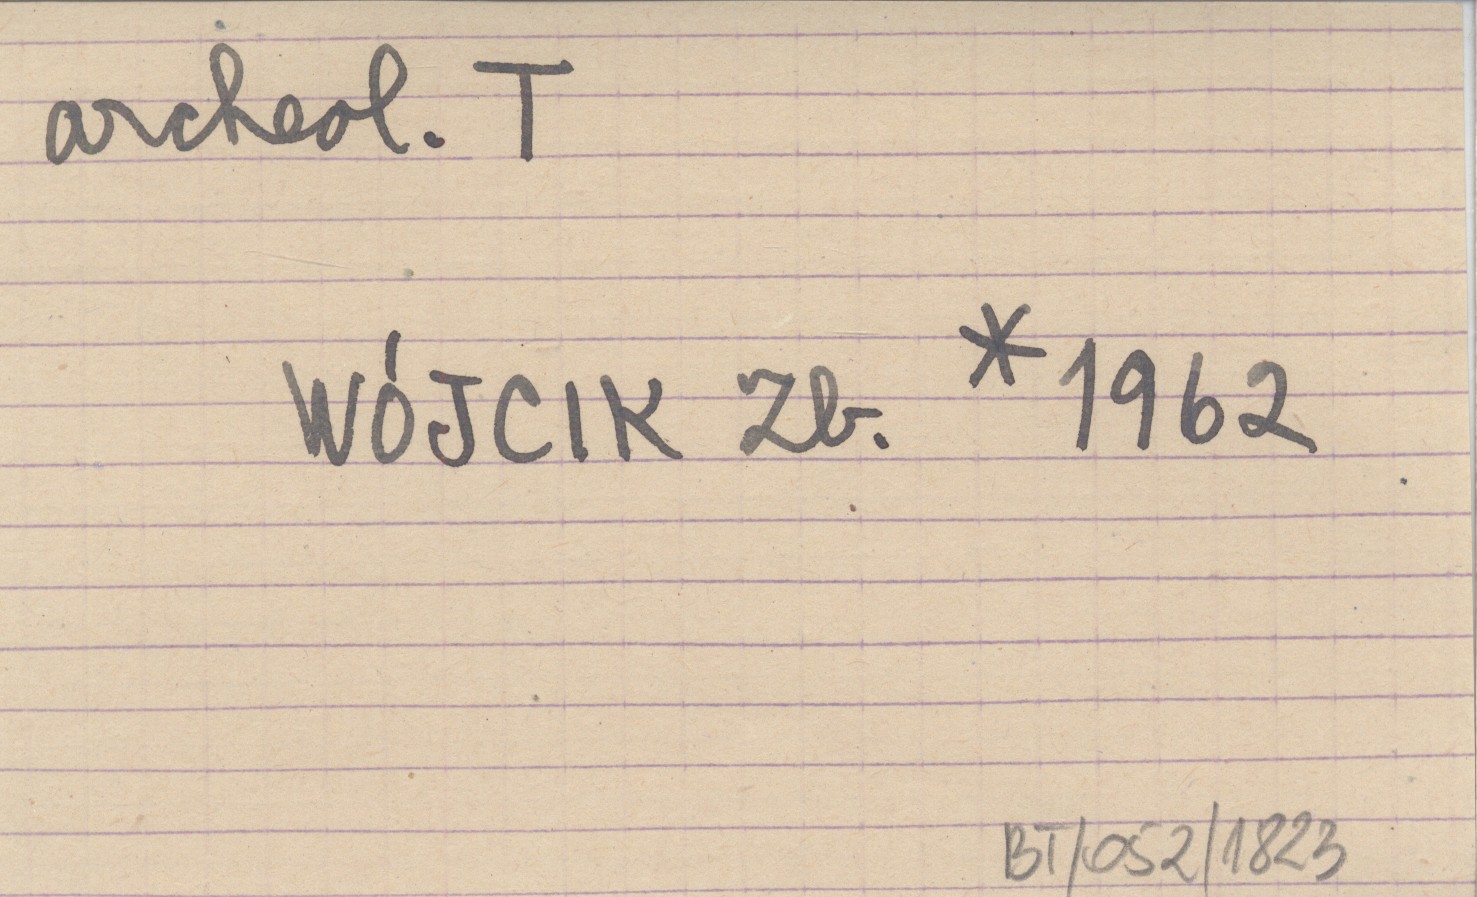 archeol. T
WÓJCIK Zb. *1962
BT/052/1823